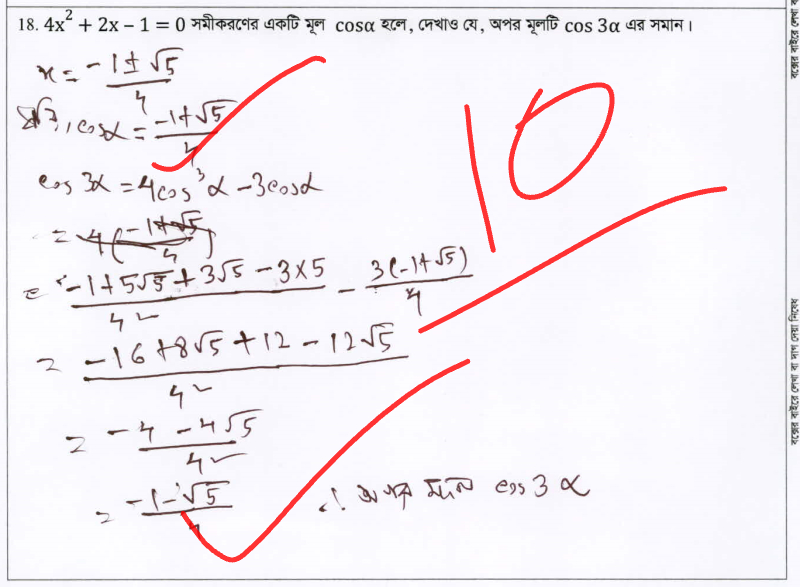 18. 4x² + 2x − 1 = 0 সমীকরণের একটি মূল cosα হলে, দেখাও যে, অপর মূলটি cos 3α এর সমান।
x = (-1 ± √5)/4
ধরি, cosα = (-1+√5)/4
10
cos 3α = 4cos³α − 3cosα
= 4(-1+√5)/4)
= (-1+5√5+3√5−3×5)/4² − 3(-1+√5)/4
= (-16+8√5+12−12√5)/4²
= (-4−4√5)/4²
= (-1−√5)/4
∴ অপর মূল cos 3α
বক্সের বাইরে লেখা বা দাগ দেয়া নিষেধ